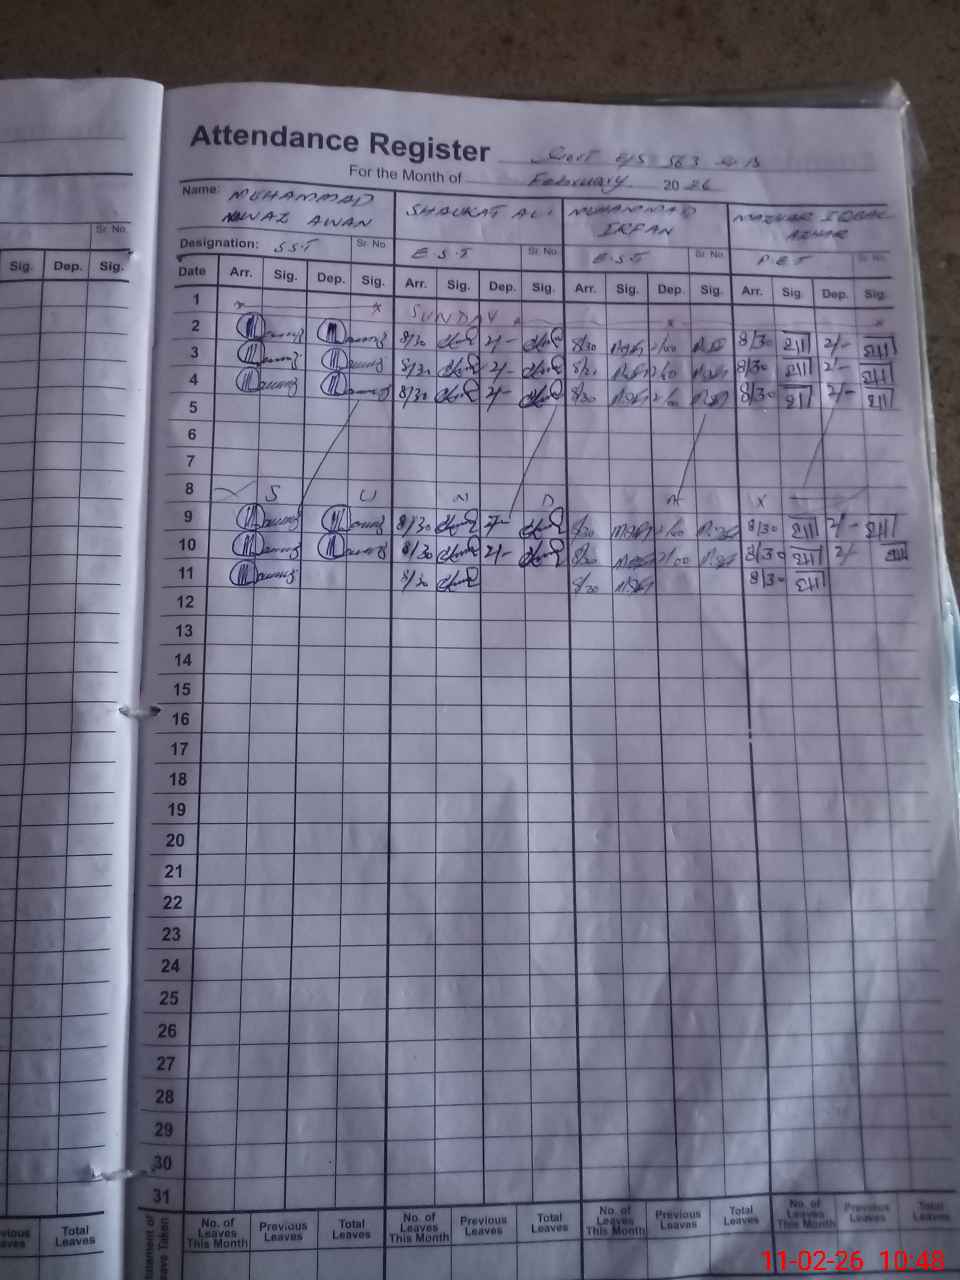 Attendance Register Govt E/S 563
For the Month of February 2026
Name: MUHAMMAD NAWAZ AWAN SHAUKAT ALI MUHAMMAD IRFAN MAZHAR IQBAL AZHAR
Sr. No.
Designation: S.S.T Sr. No. E.S.T Sr. No. E.S.T Sr. No. P.E.T Sr. No.
Sig. Dep. Sig.
Date Arr. Sig. Dep. Sig. Arr. Sig. Dep. Sig. Arr. Sig. Dep. Sig. Arr. Sig. Dep. Sig.
1 x x SUNDAY
2 8/30 2/- 8/30 2/00 8/30 2/-
3 8/30 2/- 8/30 2/00 8/30 2/-
4 8/30 2/- 8/30 2/00 8/30 2/-
5
6
7
8 S U N D A Y
9 8/30 2/- 8/30 2/00 8/30 2/-
10 8/30 2/- 8/30 2/00 8/30 2/-
11 8/30 8/30 8/30
12
13
14
15
16
17
18
19
20
21
22
23
24
25
26
27
28
29
30
31
Total Leaves
No. of Leaves This Month Previous Leaves Total Leaves No. of Leaves This Month Previous Leaves Total Leaves No. of Leaves This Month Previous Leaves Total Leaves No. of Leaves This Month Previous Leaves Total Leaves
11-02-26 10:48